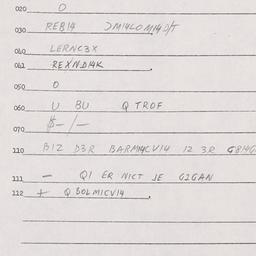 020 O
030 REB14 JM14LOM14D/T
040 LERNC3X
041 REXND14K
050 O
060 U BU Q TROF
070 $-/-
110 B12 D3R BARM14CV14 12 3R G814G
111 - Q1 ER NICT JE G2GAN
112 + Q BOLM1CV14